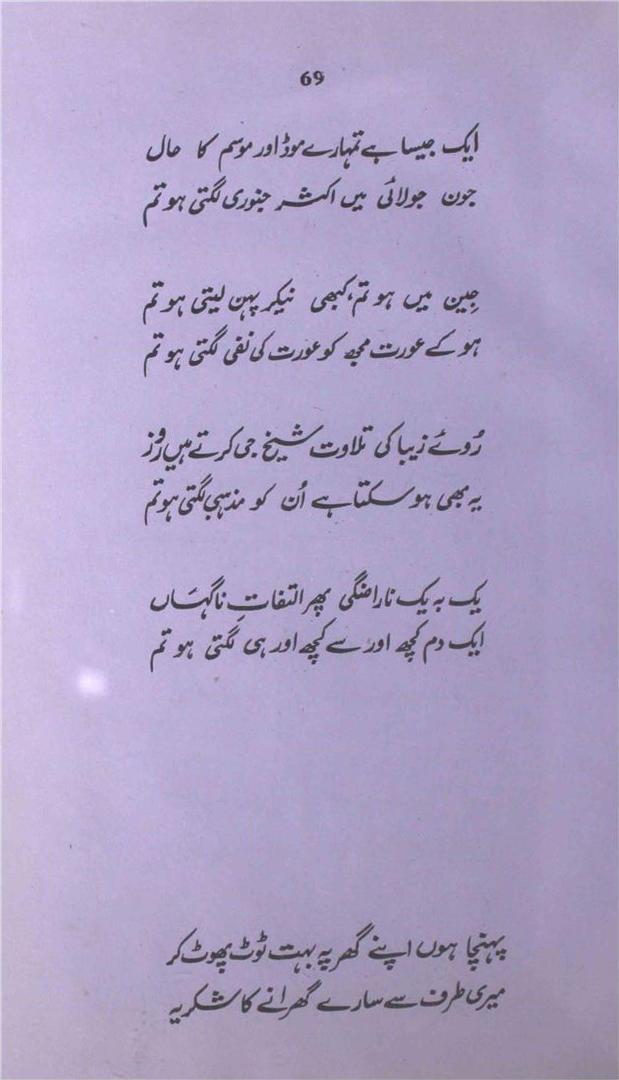 69
ایک جیسا ہے تمہارے موڈ اور موسم کا حال
جون جولائی میں اکثر جنوری لگتی ہو تم
جین میں ہو تم، کبھی نیکر پہن لیتی ہو تم
ہو کے عورت مجھ کو عورت کی نفی لگتی ہو تم
رُوئے زیبا کی تلاوت شیخ جی کرتے ہیں روز
یہ بھی ہو سکتا ہے اُن کو مذہبی لگتی ہو تم
یک بہ یک ناراضگی پھر التفاتِ ناگہاں
ایک دم کچھ اور سے کچھ اور ہی لگتی ہو تم
پہنچا ہوں اپنے گھر پہ بہت ٹوٹ پھوٹ کر
میری طرف سے سارے گھرانے کا شکریہ